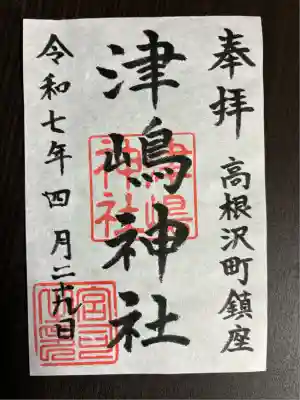 奉拝
高根沢町鎮座
津嶋神社
津島
神社
令和七年四月二十九日